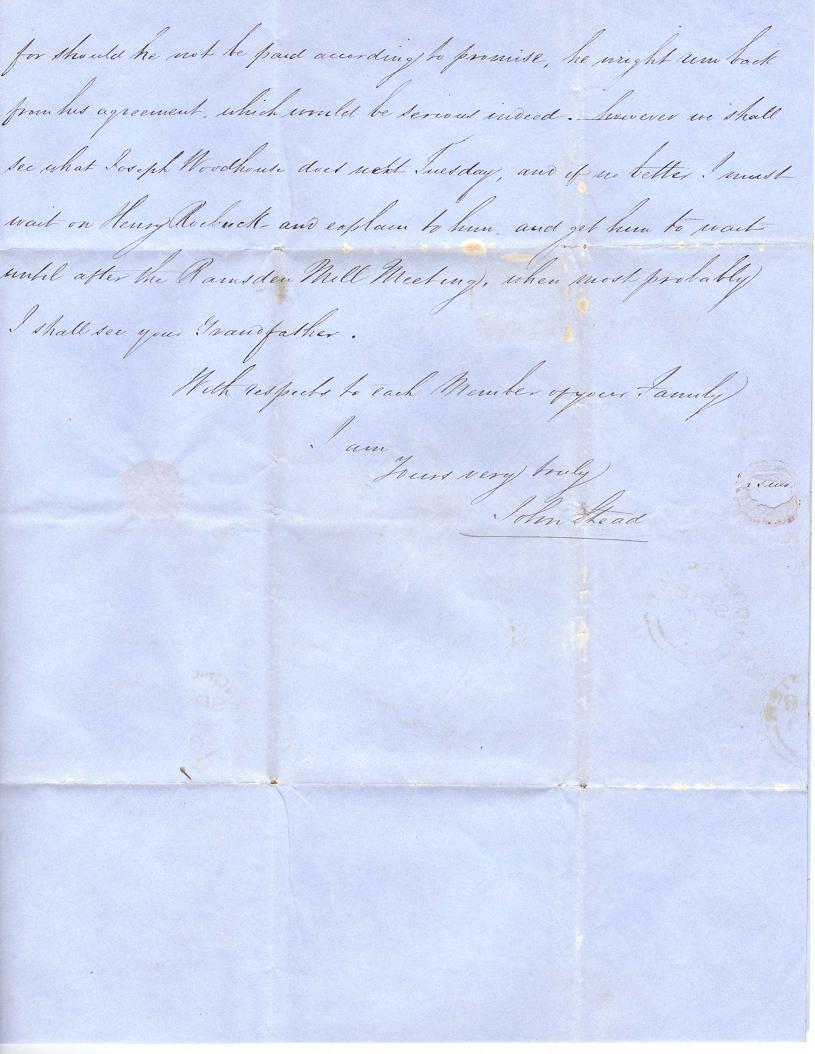 for should he not be paid according to promise, he might run back
from his agreement, which would be serious indeed. however we shall
see what Joseph Woodhouse does next Tuesday, and if no better I must
wait on Henry Roebuck and explain to him, and get him to wait
until after the Ramsden Mill Meeting, when most probably
I shall see your Grandfather.
With respects to each Member of your Family
I am
Yours very truly
John Stead